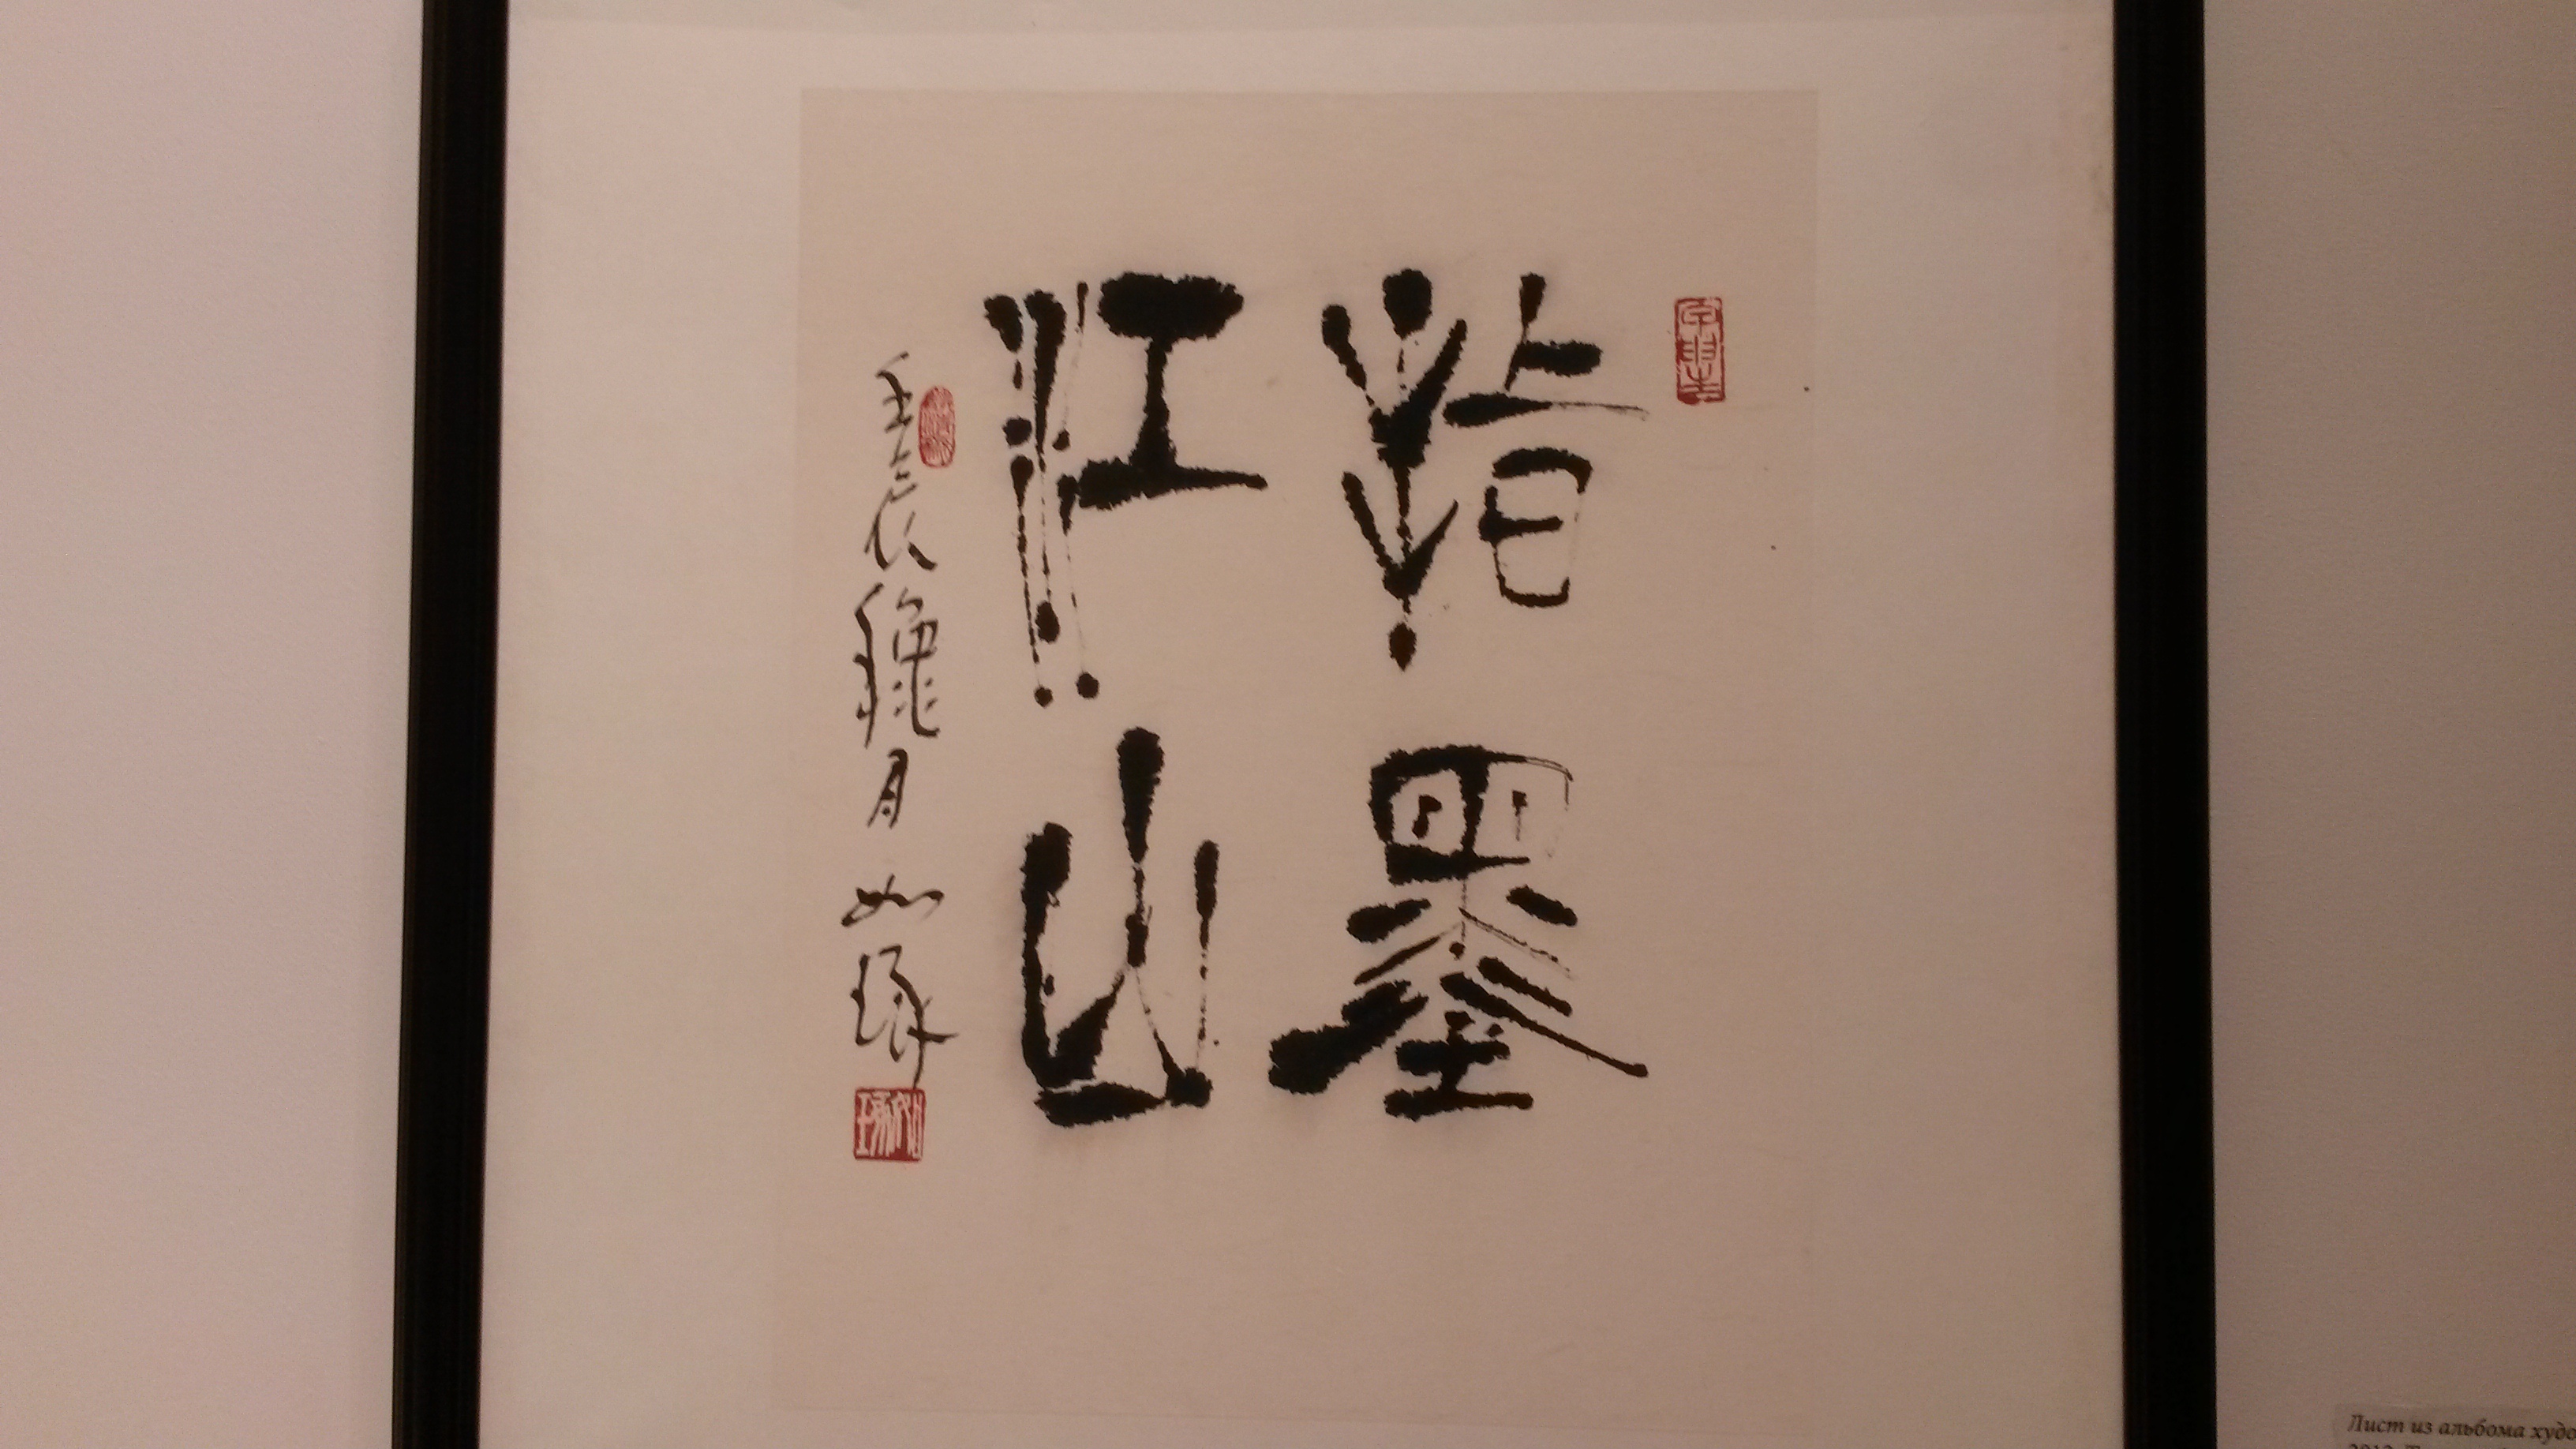 指墨
江山
壬辰穐月 如琢
Лист из альбома худо